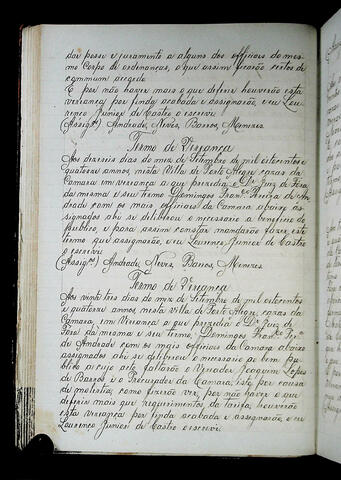 dar posse e juramento a alguns dos officiaes do mes-
mo Corpo de ordenanças, o que assim ficarão certos de
commum accordo
E por não haver mais o que deferir houverão esta
veriança por finda acabada e assignarão, e eu Lou-
renço Junior de Castro o escrevi
(Assigs.) Andrade, Neves, Barros, Menezes.
Termo de Viriança
Aos dezeseis dias do mez de Setembro de mil oitocentos e
quatorze annos, nesta Villa de Porto Alegre, e casas da
Camara em veriança a que prezidio o Dr. Juiz de Fora
da mesma e seu termo, Domingos Franco. Pereira de An-
drade com os mais officiaes da Camara abaixo as-
signados ahi se dilibirou o necessario a beneficio do
publico, e para assim constar mandarão fazer este
termo que assignarão, eu Lourenço Junior de Castro
o escrevi
(Assigs.) Andrade, Neves, Barros, Menezes.
Termo de Viriança
Aos vinte tres dias do mez de Setembro de mil oitocentos
e quatorze annos, nesta villa de Porto Alegre, casas da
Camara, em Viriança a que prezidio o Dr. Juiz de
Fora da mesma e seu termo, Domingos Franco. Perª.
de Andrade com os mais officiaes da Camara abaixo
assignados ahi se dilibirou o necessario ao bem pu-
blico, a cujo acto faltarão o Vereador Joaquim Lopes
de Barros, e o Procurador da Camara, isto por causa
de molestia, como fizerão ver, por não haver o que
deferir mais que requerimentos da tarifa, houverão
esta viriança por finda acabada e assignarão, e eu
Lourenço Junior de Castro o escrevi.